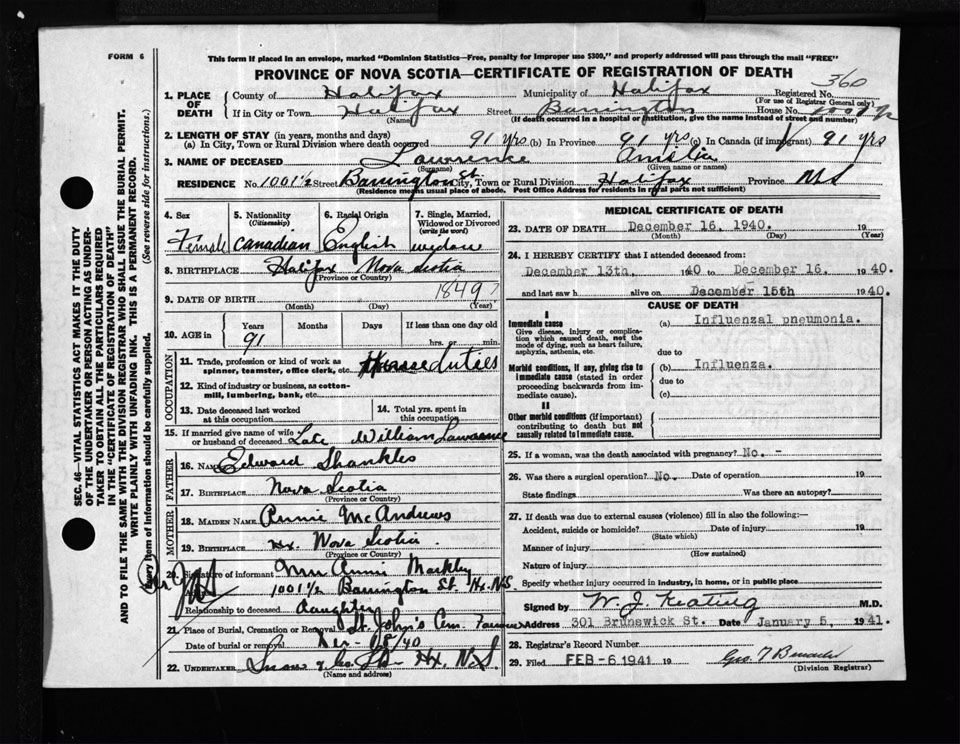 FORM 6
This form if placed in an envelope, marked "Dominion Statistics—Free, penalty for improper use $300," and properly addressed will pass through the mail "FREE"
PROVINCE OF NOVA SCOTIA—CERTIFICATE OF REGISTRATION OF DEATH
360
SEC. 46—VITAL STATISTICS ACT MAKES IT THE DUTY
OF THE UNDERTAKER OR PERSON ACTING AS UNDER-
TAKER TO OBTAIN ALL THE PARTICULARS REQUIRED
IN THE "CERTIFICATE OF REGISTRATION OF DEATH"
AND TO FILE THE SAME WITH THE DIVISION REGISTRAR WHO SHALL ISSUE THE BURIAL PERMIT.
WRITE PLAINLY WITH UNFADING INK. THIS IS A PERMANENT RECORD.
Every item of information should be carefully supplied. (See reverse side for instructions.)
1. PLACE OF DEATH
County of Halifax Municipality of Halifax Registered No.
(For use of Registrar General only)
If in City or Town Halifax Street Barrington House No. 1001 ½
(Name) (If death occurred in a hospital or institution, give the name instead of street and number)
2. LENGTH OF STAY (in years, months and days)
(a) In City, Town or Rural Division where death occurred 91 yrs (b) In Province 91 yrs (c) In Canada (if immigrant) 91 yrs
3. NAME OF DECEASED Lawrence Amelia
(Surname) (Given name or names)
RESIDENCE No. 1001 ½ Street Barrington St. City, Town or Rural Division Halifax Province N.S
(Residence means usual place of abode. Post Office Address for residents in rural parts not sufficient)
4. Sex 5. Nationality (Citizenship) 6. Racial Origin 7. Single, Married, Widowed or Divorced (write the word)
Female Canadian English widow
8. BIRTHPLACE Halifax Nova Scotia
(Province or Country)
9. DATE OF BIRTH 1849
(Month) (Day) (Year)
10. AGE in Years Months Days If less than one day old
91 hrs. or min.
OCCUPATION
11. Trade, profession or kind of work as spinner, teamster, office clerk, etc. House duties
12. Kind of industry or business, as cotton-mill, lumbering, bank, etc.
13. Date deceased last worked at this occupation 14. Total yrs. spent in this occupation
15. If married give name of wife or husband of deceased Late William Lawrence
FATHER
16. Name Edward Shankles
17. BIRTHPLACE Nova Scotia
(Province or Country)
MOTHER
18. MAIDEN NAME Annie McAndrews
19. BIRTHPLACE Hx. Nova Scotia
(Province or Country)
20. Signature of informant Mrs Annie Markley
1001 ½ Barrington St. Hx. N.S
Relationship to deceased daughter
21. Place of Burial, Cremation or Removal St. John's Cem.
Date of burial or removal Dec 18/40
22. UNDERTAKER Snow & Co Ltd Hx. N.S
(Name and address)
MEDICAL CERTIFICATE OF DEATH
23. DATE OF DEATH December 16, 1940. 19
(Month) (Day) (Year)
24. I HEREBY CERTIFY that I attended deceased from:
December 13th, 1940 to December 16, 1940.
and last saw h alive on December 15th 1940.
CAUSE OF DEATH
I
Immediate cause (a) Influenzal pneumonia.
Give disease, injury or complication which caused death, not the mode of dying, such as heart failure, asphyxia, asthenia, etc.
due to
Morbid conditions, if any, giving rise to immediate cause (stated in order proceeding backwards from immediate cause).
(b) Influenza.
due to
(c)
II
Other morbid conditions (if important) contributing to death but not causally related to immediate cause.
25. If a woman, was the death associated with pregnancy? No. -
26. Was there a surgical operation? No. Date of operation 19
State findings Was there an autopsy?
27. If death was due to external causes (violence) fill in also the following:—
Accident, suicide or homicide? Date of injury 19
(State which)
Manner of injury
(How sustained)
Nature of injury
Specify whether injury occurred in industry, in home, or in public place
Signed by W. J. Keating M.D.
Address 301 Brunswick St. Date January 5, 1941.
28. Registrar's Record Number
29. Filed FEB -6 1941 19
(Division Registrar)